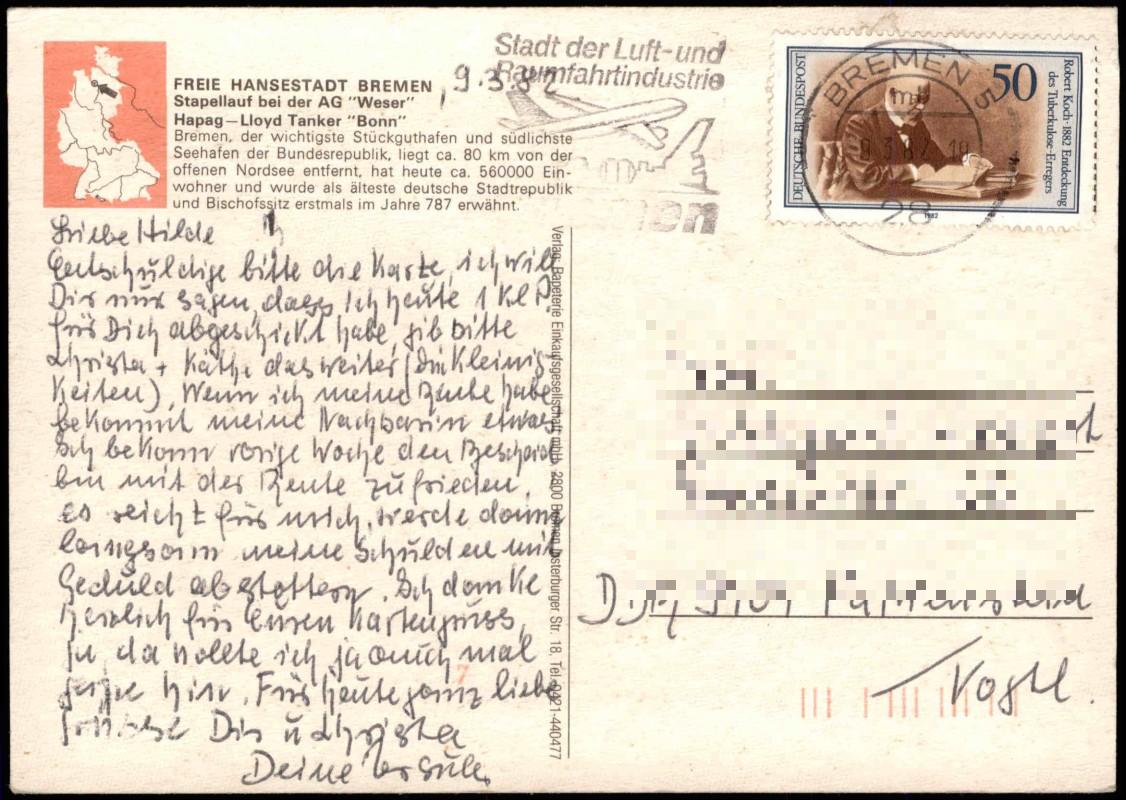 FREIE HANSESTADT BREMEN
Stapellauf bei der AG "Weser"
Hapag–Lloyd Tanker "Bonn"
Bremen, der wichtigste Stückguthafen und südlichste
Seehafen der Bundesrepublik, liegt ca. 80 km von der
offenen Nordsee entfernt, hat heute ca. 560000 Ein-
wohner und wurde als älteste deutsche Stadtrepublik
und Bischofssitz erstmals im Jahre 787 erwähnt.
9.3.82
Stadt der Luft-und
Raumfahrtindustrie
BREMEN 5
28
DEUTSCHE BUNDESPOST
50
Robert Koch · 1882 Entdeckung
des Tuberkulose-Erregers
1982
Liebe Hilde
Entschuldige bitte die Karte, ich will
Dir nur sagen, dass ich heute 1 Kl P.
für Dich abgeschickt habe, gib bitte
Christa + Käthe das weiter (die Kleinig-
keiten). Wenn ich meine Rente habe
bekommt meine Nachbarin etwas
Ich bekam vorige Woche den Bescheid
bin mit der Rente zufrieden,
es reicht für mich, werde dann
langsam meine Schulden mit
Geduld abstottern. Ich danke
herzlich für Euren Kartengruss,
ja, da wollte ich ja auch mal
gerne hin. Für heute ganz liebe
Grüsse Dir u Christa
Deine Ursula
Verlag: Papeterie Einkaufsgesellschaft mbH, 2800 Bremen, Osterburger Str. 18, Tel. 0421-440477
Vogtl.